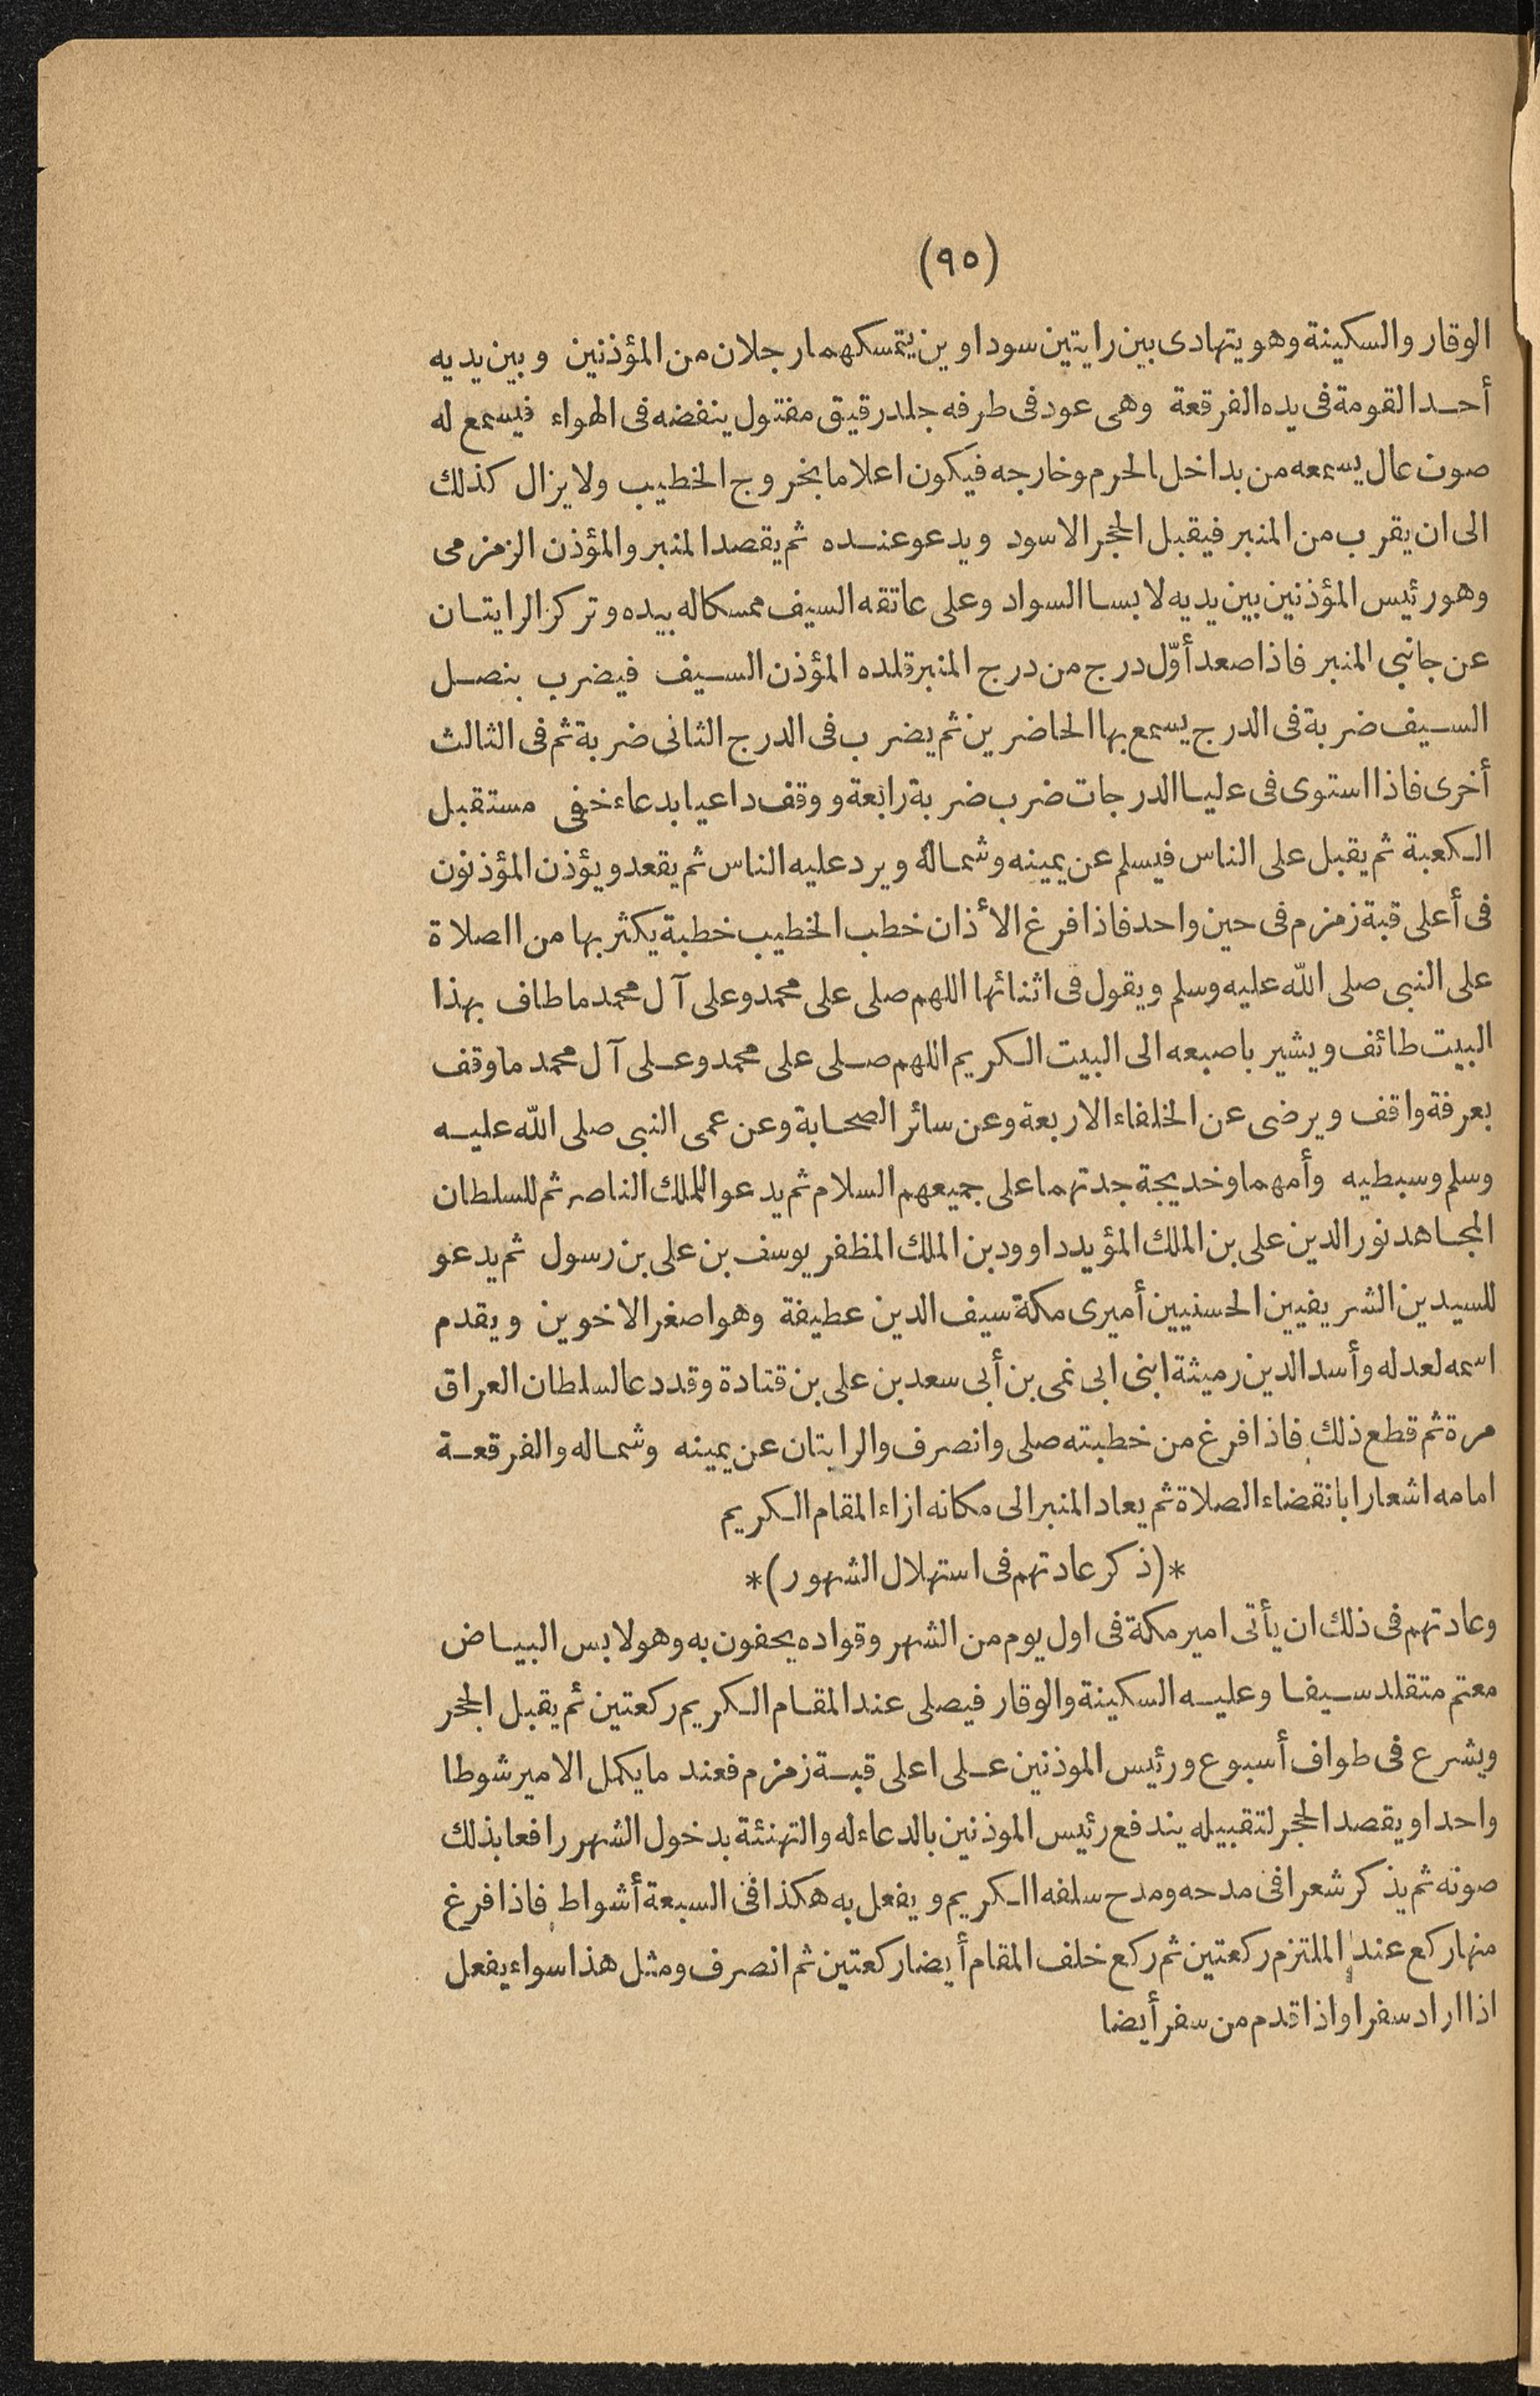 (٩٥)
الوقار والسكينة وهو يتهادى بين رايتين سوداوين يتمسكهما رجلان من المؤذنين وبين يديه
أحد القومة فى يده الفرقعة وهى عود فى طرفه جلد رقيق مفتول ينفضه فى الهواء فيسمع له
صوت عال يسمعه من بداخل الحرم وخارجه فيكون اعلاما بخروج الخطيب ولا يزال كذلك
الى ان يقرب من المنبر فيقبل الحجر الاسود ويدعو عنده ثم يقصد المنبر والمؤذن الزمزمى
وهو رئيس المؤذنين بين يديه لابسا السواد وعلى عاتقه السيف ممسكا له بيده وتركز الرايتان
عن جانبى المنبر فاذا صعد أوّل درج من درج المنبر قلده المؤذن السيف فيضرب بنصل
السيف ضربة فى الدرج يسمع بها الحاضرين ثم يضرب فى الدرج الثانى ضربة ثم فى الثالث
أخرى فاذا استوى فى عليا الدرجات ضرب ضربة رابعة ووقف داعيا بدعاء خفى مستقبل
الكعبة ثم يقبل على الناس فيسلم عن يمينه وشماله ويرد عليه الناس ثم يقعد ويؤذن المؤذنون
فى أعلى قبة زمزم فى حين واحد فاذا فرغ الأذان خطب الخطيب خطبة يكثر بها من الصلاة
على النبى صلى الله عليه وسلم ويقول فى اثنائها اللهم صلى على محمد وعلى آل محمد ما طاف بهذا
البيت طائف ويشير باصبعه الى البيت الكريم اللهم صلى على محمد وعلى آل محمد ما وقف
بعرفة واقف ويرضى عن الخلفاء الاربعة وعن سائر الصحابة وعن عمى النبى صلى الله عليه
وسلم وسبطيه وأمهما وخديجة جدتهما على جميعهم السلام ثم يدعو للملك الناصر ثم للسلطان
المجاهد نور الدين على بن الملك المؤيد داوود بن الملك المظفر يوسف بن على بن رسول ثم يدعو
للسيدين الشريفيين الحسنيين أميرى مكة سيف الدين عطيفة وهو اصغر الاخوين ويقدم
اسمه لعدله وأسد الدين رميثة ابنى ابى نمى بن أبى سعد بن على بن قتادة وقد دعا لسلطان العراق
مرة ثم قطع ذلك فاذا فرغ من خطبته صلى وانصرف والرايتان عن يمينه وشماله والفرقعة
امامه اشعارا بانقضاء الصلاة ثم يعاد المنبر الى مكانه ازاء المقام الكريم
*(ذكر عادتهم فى استهلال الشهور)*
وعادتهم فى ذلك ان يأتى امير مكة فى اول يوم من الشهر وقواده يحفون به وهو لابس البياض
معتم متقلد سيفا وعليه السكينة والوقار فيصلى عند المقام الكريم ركعتين ثم يقبل الحجر
ويشرع فى طواف أسبوع ورئيس الموذنين على اعلى قبة زمزم فعند ما يكمل الامير شوطا
واحدا ويقصد الحجر لتقبيله يندفع رئيس الموذنين بالدعاء له والتهنئة بدخول الشهر رافعا بذلك
صوته ثم يذكر شعرا فى مدحه ومدح سلفه الكريم ويفعل به هكذا فى السبعة أشواط فاذا فرغ
منها ركع عند الملتزم ركعتين ثم ركع خلف المقام أيضا ركعتين ثم انصرف ومثل هذا سواء يفعل
اذا اراد سفرا واذا قدم من سفر أيضا